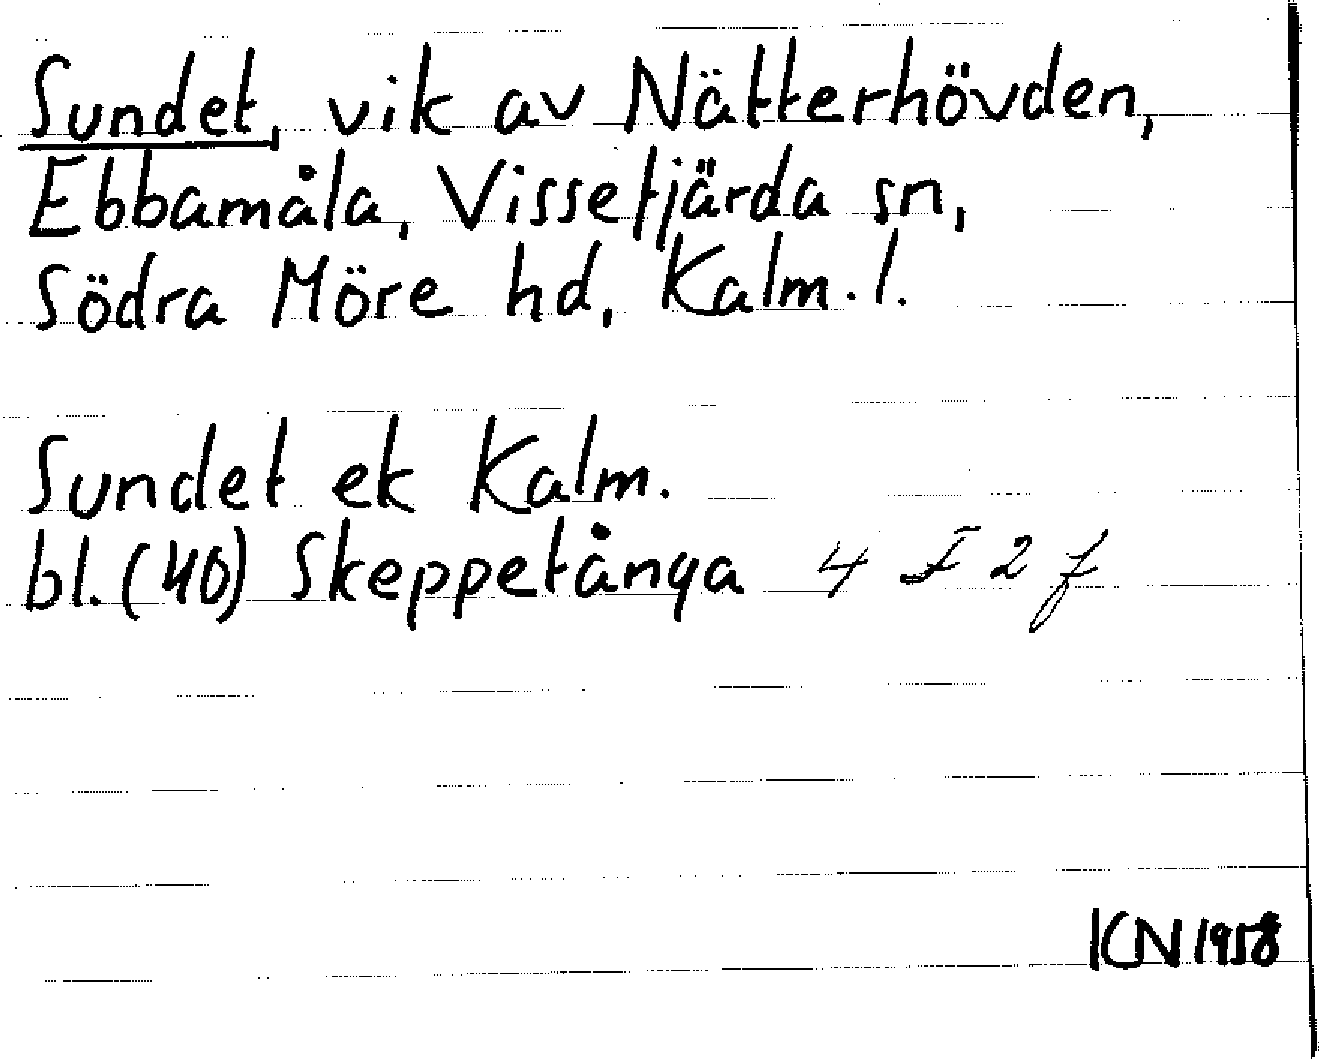 Sundet, vik av Nätterhövden,
Ebbamåla, Vissefjärda sn,
Södra Möre hd, Kalm. l.
Sundet ek Kalm.
bl. (40) Skeppetånga 4 F 2 f
KN 1958